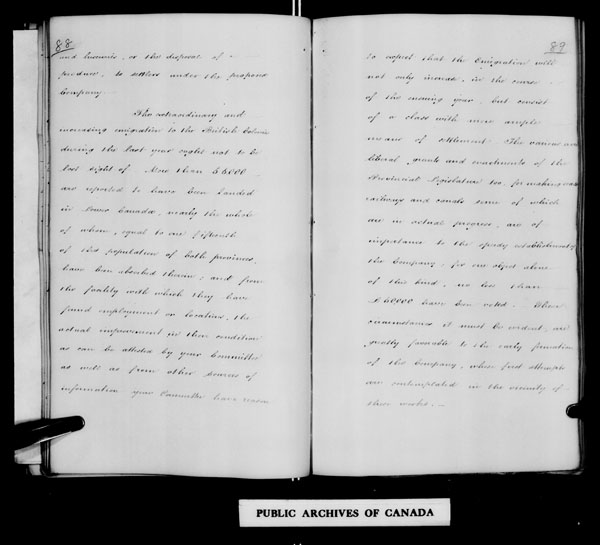 88
and luxuries, or the disposal of
produce, to settlers under the proposed
Company.
The extraordinary and
increasing emigration to the British Colonies
during the last year ought not to be
lost sight of. More than 55000
are reported to have been landed
in Lower Canada, nearly the whole
of whom, equal to one fifteenth
of the population of both provinces,
have been absorbed therein; and from
the facility with which they have
found employment or location, the
actual improvement in their condition
as can be attested by your Committee
as well as from other sources of
information your Committee have reason
89
to expect that the Emigration will
not only increase, in the course
of the ensuing year, but consist
of a class with more ample
means of settlement. The various and
liberal grants and enactments of the
Provincial Legislature too, for making
railways and canals some of which
are in actual progress, are of
importance to the speedy establishment of
the Company, for one object alone
of this kind, no less than
£50,000 have been voted. These
circumstances it must be evident, are
greatly favorable to the early formation
of the Company, whose first attempts
are contemplated in the vicinity of
these works.
PUBLIC ARCHIVES OF CANADA